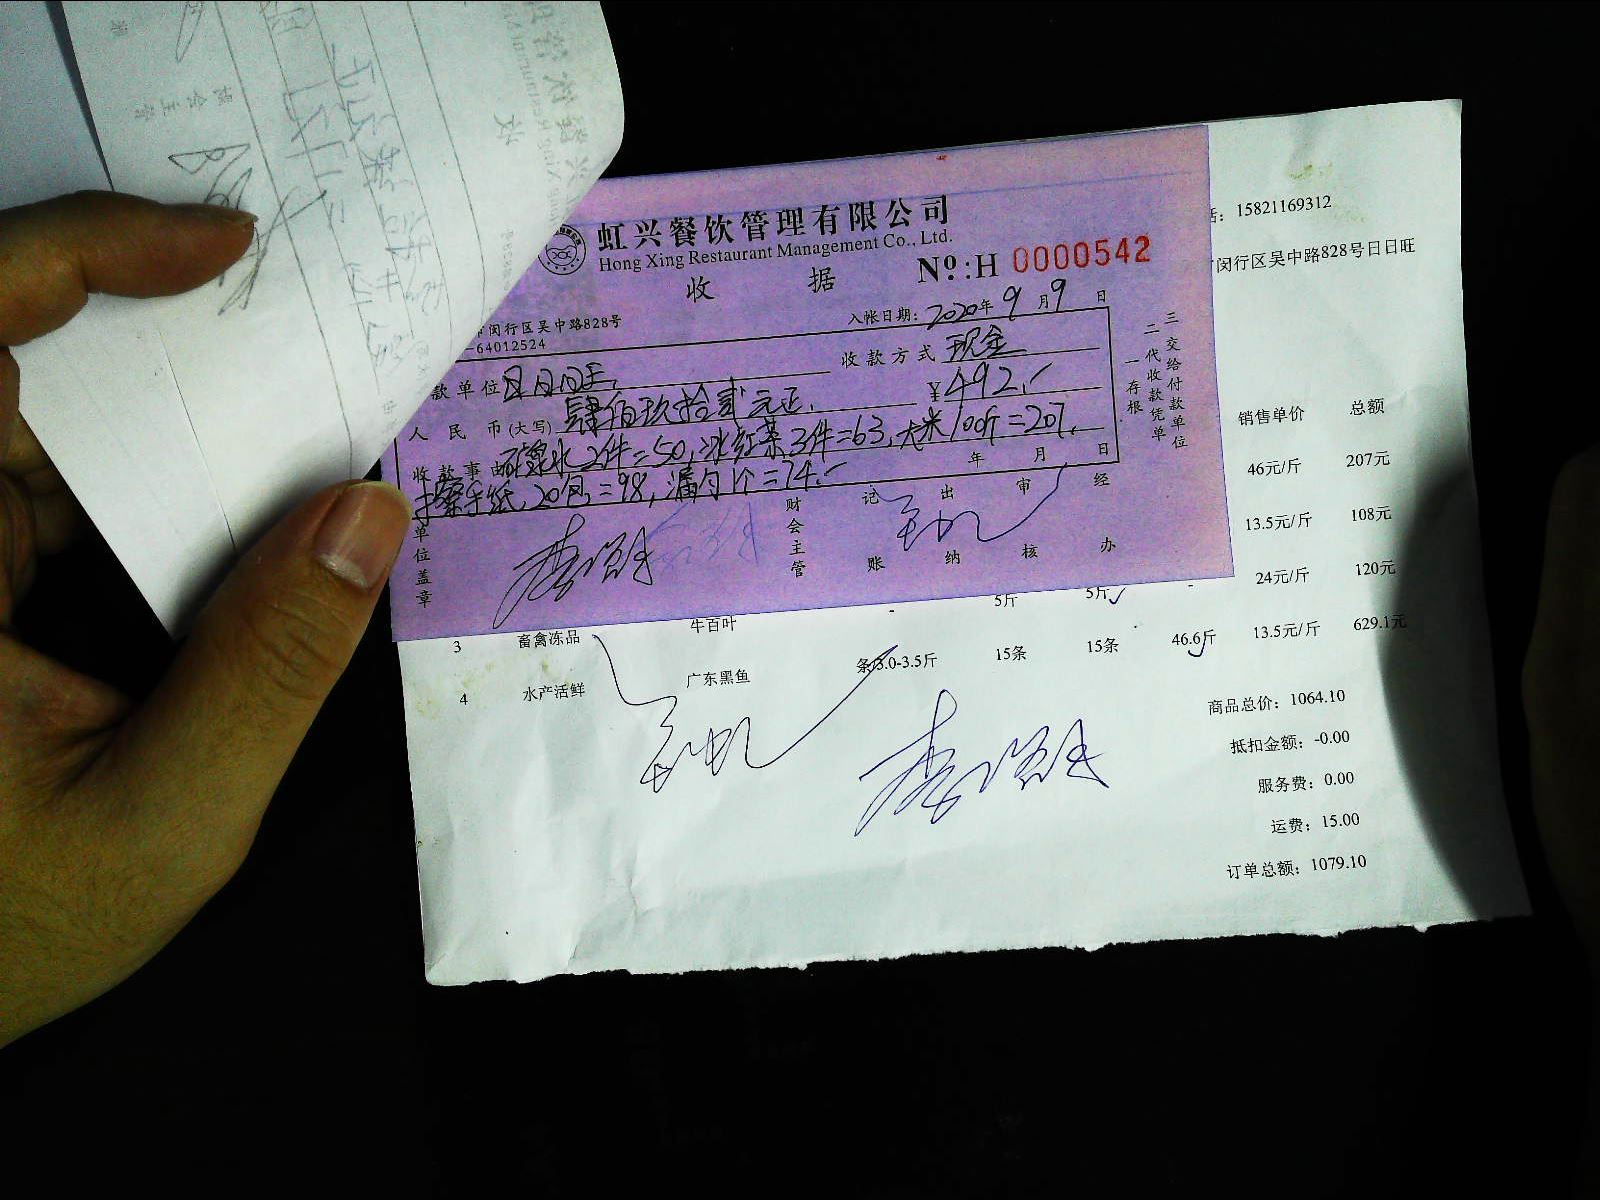 虹兴餐饮管理有限公司
Hong Xing Restaurant Management Co., Ltd.
收 据
№:H 0000542
闵行区吴中路828号
-64012524
入帐日期: 2020年 9月 9日
款单位 日日旺
收款方式 现金
人民币(大写) 肆佰玖拾贰元正.
¥492.-
收款事由 矿泉水2件=50,冰红茶3件=63,大米100斤=207.
擦手纸20包=98,漏勺1个=74.-
年 月 日
单位盖章
财会主管
记账
出纳
审核
经办
一存根
二代收款凭单
三交给付款单位
话: 15821169312
闵行区吴中路828号日日旺
销售单价 总额
46元/斤 207元
13.5元/斤 108元
5斤 5斤 - 24元/斤 120元
3 畜禽冻品 牛百叶 -
4 水产活鲜 广东黑鱼 条/3.0-3.5斤 15条 15条 46.6斤 13.5元/斤 629.1元
商品总价: 1064.10
抵扣金额: -0.00
服务费: 0.00
运费: 15.00
订单总额: 1079.10